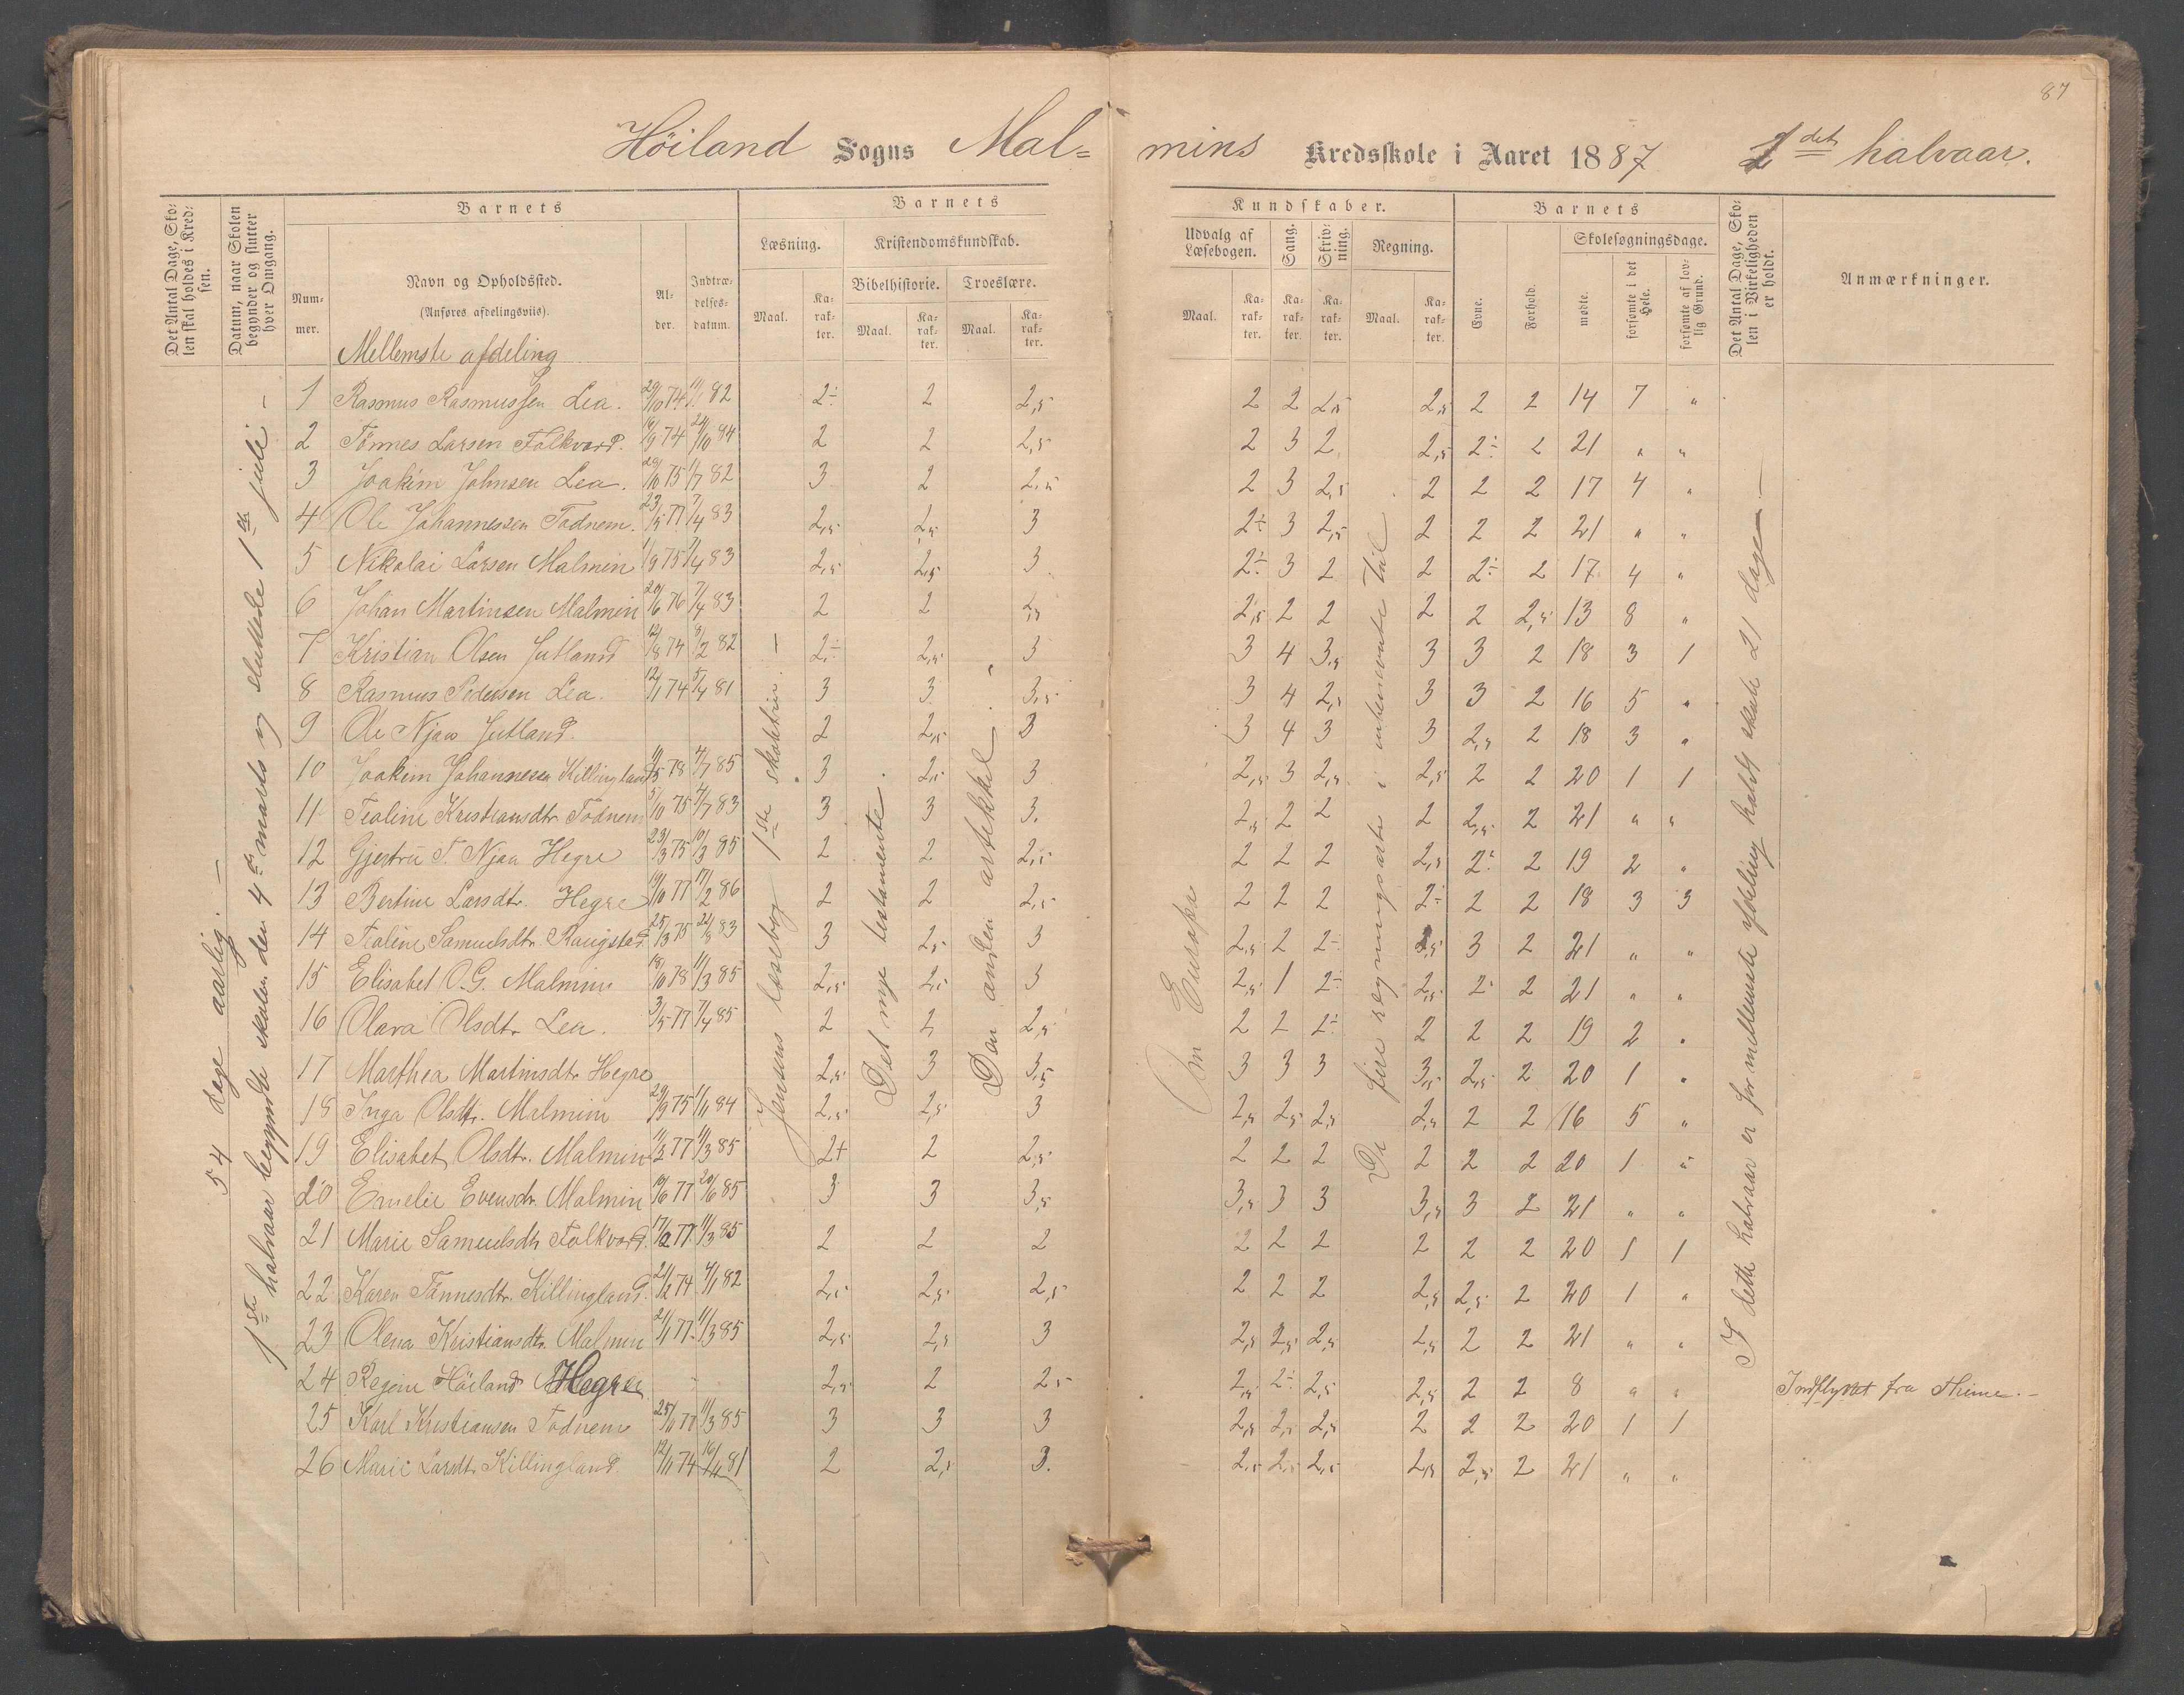 87
Höiland Sogns Mal=
mins Kredsskole i Aaret 1887 1det halvaar.
Det Antal Dage, Skolen skal holdes i Kredsen.
Datum, naar Skolen begynder og slutter hver Omgang.
Barnets
Nummer.
Navn og Opholdssted.
(Anføres afdelingsviis).
Alder.
Indtrædelsesdatum.
Barnets
Læsning.
Kristendomskundskab.
Bibelhistorie. Troeslære.
Maal. Karakter. Maal. Karakter. Maal. Karakter.
Kundskaber.
Udvalg af Læsebogen. Sang. Skrivning. Regning.
Maal. Karakter. Karakter. Karakter. Maal. Karakter.
Barnets
Evne. Forhold. Skolesøgningsdage.
mødte. forsømte i det Hele. forsømte af lovlig Grund.
Det Antal Dage, Skolen i Virkeligheden er holdt.
Anmærkninger.
Mellemste afdeling
54 dage aarlig. —
1ste halvaar begyndte skolen den 4de marts og sluttede 1ste juli —
Jensens læsebog 1ste skoletrin. —
Det nye testamente.
Den anden artikkel.
Om Europa
De fire regningsarter i ubenævnte tal
I dette halvaar er for mellemste afdeling holdt skole 21 dage —
1 Rasmus Rasmussen Lea. 29/10 74 11/1 82 2÷ 2 2,5 2 2 2,5 2,5 2 2 14 7 "
2 Tönnes Larsen Folkvord. 16/9 74 24/10 84 2 2 2,5 2 3 2 2,5 2÷ 2 21 " "
3 Joakim Johnsen Lea. 29/10 75 1/7 82 3 2 2,5 2 3 2,5 2 2 2 17 4 "
4 Ole Johannessen Todnem. 23/5 77 7/4 83 2,5 2,5 3 2÷ 3 2,5 2 2 2 21 " "
5 Nikolai Larsen Malmin 1/9 75 7/4 83 2,5 2,5 3 2÷ 3 2 2 2÷ 2 17 4 "
6 Johan Martinsen Malmin 20/6 76 7/4 83 2 2 2,5 2,5 2 2 2 2 2,5 13 8 "
7 Kristian Olsen Jutland 12/8 74 9/2 82 2÷ 2,5 3 3 4 3,5 3 3 2 18 3 1
8 Rasmus Pedersen Lea. 12/1 74 5/4 81 3 3 3,5 3 4 2,5 3 3 2 16 5 "
9 Ole Njaa Jutland. 2 2,5 3 3 4 3 3 2,5 2 18 3 "
10 Joakim Johannesen Killingland 11/5 78 4/7 85 3 2,5 3 2,5 3 2,5 2,5 2 2 20 1 1
11 Teoline Kristiansdtr Todnem 5/10 75 4/7 83 3 3 3. 2,5 2 2 2 2,5 2 21 " "
12 Gjertru T. Njaa Hegre 23/3 75 10/3 85 2 2 2,5 2 2 2 2,5 2÷ 2 19 2 "
13 Bertine Larsdtr. Hegre 19/10 77 17/2 86 2 2 2,5 2 2 2 2÷ 2 2 18 3 3
14 Teoline Samuelsdtr. Raugstad 25/3 75 83 3 2,5 3 2,5 2 2÷ 2,5 3 2 21 " "
15 Elisabet O.G. Malmin 18/10 78 11/3 85 2,5 2,5 3 2,5 1 2÷ 2,5 2 2 21 " "
16 Olava Olsdtr Lea. 3/5 77 7/4 85 2 2 2,5 2 2 2÷ 2 2 2 19 2 "
17 Marthea Martinsdtr Hegre 2,5 3 3,5 3 3 3 3,5 2,5 2 20 1 "
18 Inga Olsdtr. Malmin 29/9 75 1/11 84 2,5 2,5 3 2,5 2,5 2,5 2,5 2 2 16 5 "
19 Elisabet Olsdtr. Malmin 11/3 77 11/3 85 2+ 2 2,5 2 2 2 2 2 2 20 1 "
20 Emelie Evensdr. Malmin 19/6 77 20/6 85 3 3 3,5 3,5 3 3 3,5 3 2 21 " "
21 Marie Samuelsdtr Folkvord. 17/2 77 11/3 85 2 2 2 2 2 2 2 2 2 20 1 1
22 Karen Tönnesdtr. Killingland. 21/2 74 4/1 82 2,5 2,5 2,5 2 2 2 2,5 2,5 2 20 1 "
23 Olena Kristiansdtr. Malmin 21/1 77 11/3 85 2,5 2,5 3 2,5 2,5 2,5 2,5 2 2 21 " "
24 Regine Höiland Hegre 2,5 2 2,5 2,5 2÷ 2,5 2,5 2 2 8 " " Indflyttet fra Thime. —
25 Karl Kristiansen Todnem 25/11 77 11/3 85 3 3 3 2,5 2,5 2,5 2 2 2 20 1 1
26 Marie Larsdtr Killingland. 12/11 74 16/11 81 2 2,5 3. 2,5 2,5 2,5 2,5 2,5 2 21 " "